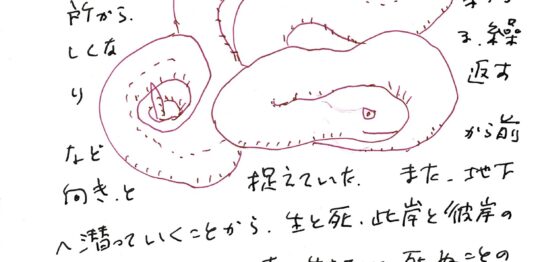 所から、
しくな
り
など
向き、と
る、繰
返す
から前
捉えていた。また、地下
へ潜っていくことから、生と死、此岸と彼岸の